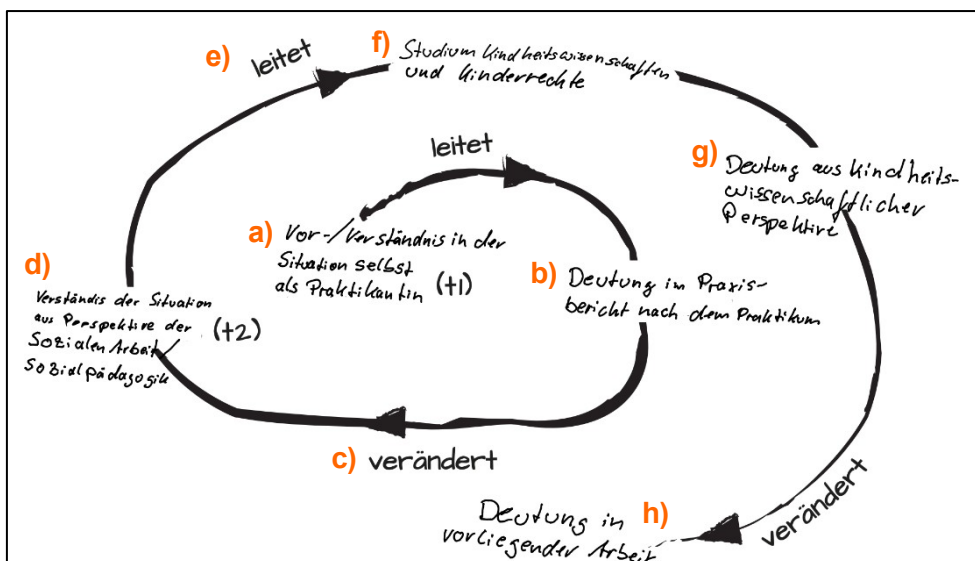 e) leitet
f) Studium Kindheitswissenschaften
und Kinderrechte
leitet
g) Deutung aus kindheits-
wissenschaftlicher
Perspektive
a) Vor-/Verständnis in der
Situation selbst
als Praktikantin (t1)
b) Deutung im Praxis-
bericht nach dem Praktikum
d)
Verständis der Situation
aus Perspektive der (t2)
Sozialen Arbeit/
Sozialpädagogik
c) verändert
verändert
h) Deutung in
vorliegender Arbeit